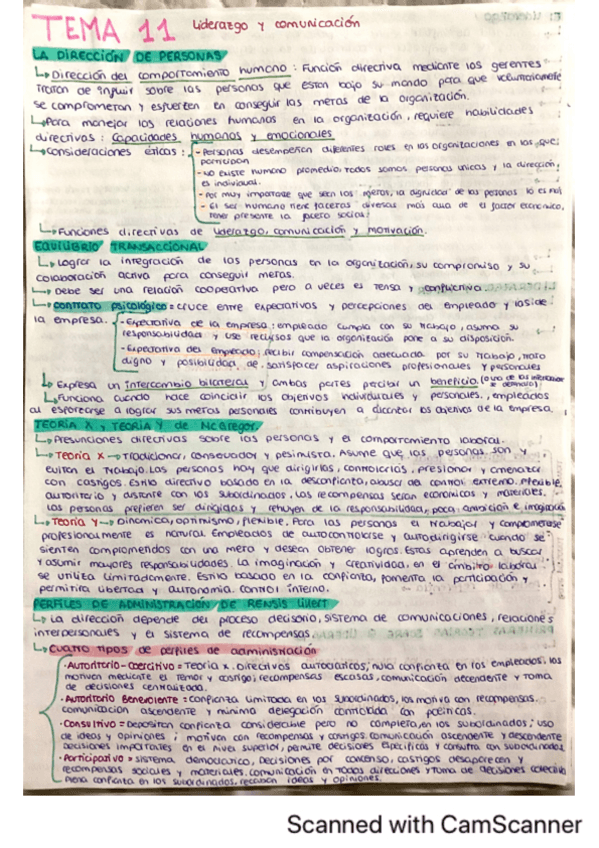 TEMA 11 Liderazgo y comunicación
LA DIRECCIÓN DE PERSONAS
↳ Dirección del comportamiento humano: Función directiva mediante los gerentes
tratan de influir sobre las personas que estan bajo su mando para que voluntariamente
se comprometan y esfuercen en conseguir las metas de la organización.
↳ Para manejar las relaciones humanas en la organización, requiere habilidades
directivas: Capacidades humanas y emocionales
↳ Consideraciones éticas:
- Personas desempeñan diferentes roles en las organizaciones en las que
participan
- No existe humano promedio. Todos somos personas unicas y la dirección
es individual.
- Por muy importante que sean los la dignidad de las personas lo es
- El ser humano tiene facetas diversas más allá de el factor económico,
tener presente la faceta social.
↳ Funciones directivas de liderazgo, comunicación y motivación.
EQUILIBRIO TRANSACCIONAL
↳ Lograr la integración de las personas en la organización, su compromiso y su
colaboración activa para conseguir metas.
↳ Debe ser una relación cooperativa pero a veces es tensa y conflictiva.
↳ Contrato psicológico = cruce entre expectativas y percepciones del empleado y las de
la empresa.
- Expectativa de la empresa: empleado cumpla con su trabajo, asuma su
responsabilidad y use recursos que la organización pone a su disposición.
- Expectativa del empleado: recibir compensación adecuada por su trabajo, trato
digno y posibilidad de satisfacer aspiraciones profesionales y personales
↳ Expresa un intercambio bilateral y ambas partes perciben un beneficio.
↳ Funciona cuando hace coincidir los objetivos individuales y personales, empleados
al esforzarse a lograr sus metas personales contribuyen a alcanzar los objetivos de la empresa.
TEORIA X y TEORIA Y de McGregor
↳ Presunciones directivas sobre las personas y el comportamiento laboral.
↳ Teoría X → Tradicional, conservador y pesimista. Asume que las personas son y
evitan el trabajo. Las personas hay que dirigirlas, controlarlas, presionar y amenazar
con castigos. Estilo directivo basado en la desconfianza, abusa del control extremo. Inflexible,
autoritario y distante con los subordinados, las recompensas serian economicas y materiales.
Las personas prefieren ser dirigidas y rehuyen de la responsabilidad, poca ambición e imaginación
↳ Teoría Y → Dinámica, optimismo, flexible. Para las personas el trabajar y comprometerse
profesionalmente es natural. Empleados de autocontrolarse y autodirigirse cuando se
sienten comprometidos con una meta y desean obtener logros. Estas aprenden a buscar
y asumir mayores responsabilidades. La imaginación y creatividad, en el ámbito laboral
se utiliza limitadamente. Estilo basado en la confianza, fomenta la participación y
permitira libertad y autonomía. Control interno.
PERFILES DE ADMINISTRACIÓN DE RENSIS likert
↳ La dirección depende del proceso decisorio, sistema de comunicaciones, relaciones
interpersonales y el sistema de recompensas.
↳ Cuatro tipos de perfiles de administración
· Autoritario-coercitivo = Teoría X. Directivos autocráticos, nula confianza en los empleados, los
motivan mediante el temor y castigo, recompensas escasas, comunicación descendente y toma
de decisiones centralizada.
· Autoritario Benevolente = Confianza limitada en los subordinados, los motiva con recompensas.
comunicación ascendente y mínima delegación controlada con políticas.
· Consultivo = Depositan confianza considerable pero no completa, en los subordinados; uso
de ideas y opiniones; motivan con recompensas y castigos. comunicación ascendente y descendente
Decisiones importantes en el nivel superior, permite decisiones especificas y consulta con subordinados
· Participativo = sistema democratico, Decisiones por consenso, castigos desaparecen y
recompensas sociales y materiales. comunicación en todas direcciones y toma de decisiones colectiva
Plena confianza en los subordinados, recaban ideas y opiniones.
Scanned with CamScanner